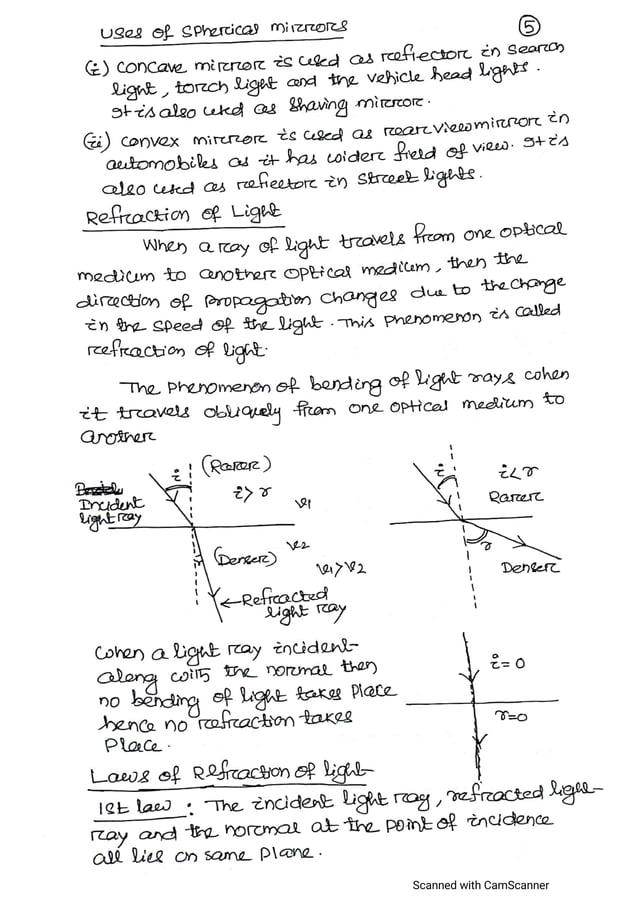 Uses of Spherical mirrors
5
(i) concave mirror is used as reflector in search
light, torch light and the vehicle head lights.
It is also used as Shaving mirror.
(ii) convex mirror is used as rearview mirror in
automobiles as it has wider field of view. It is
also used as reflector in street lights.
Refraction of Light
When a ray of light travels from one optical
medium to another optical medium, then the
direction of propagation changes due to the change
in the speed of the light. This phenomenon is called
refraction of light.
The phenomenon of bending of light rays when
it travels obliquely from one optical medium to
another
i
(Rarer)
i > r
v1
Incident
light ray
(Denser)
v2
v1 > v2
r
Refracted
light ray
i
i < r
Rarer
r
Denser
when a light ray incident
along with the normal then
no bending of light takes place
hence no refraction takes
place.
i = 0
r = 0
Laws of Refraction of light
1st law : The incident light ray, refracted light
ray and the normal at the point of incidence
all lies on same plane.
Scanned with CamScanner